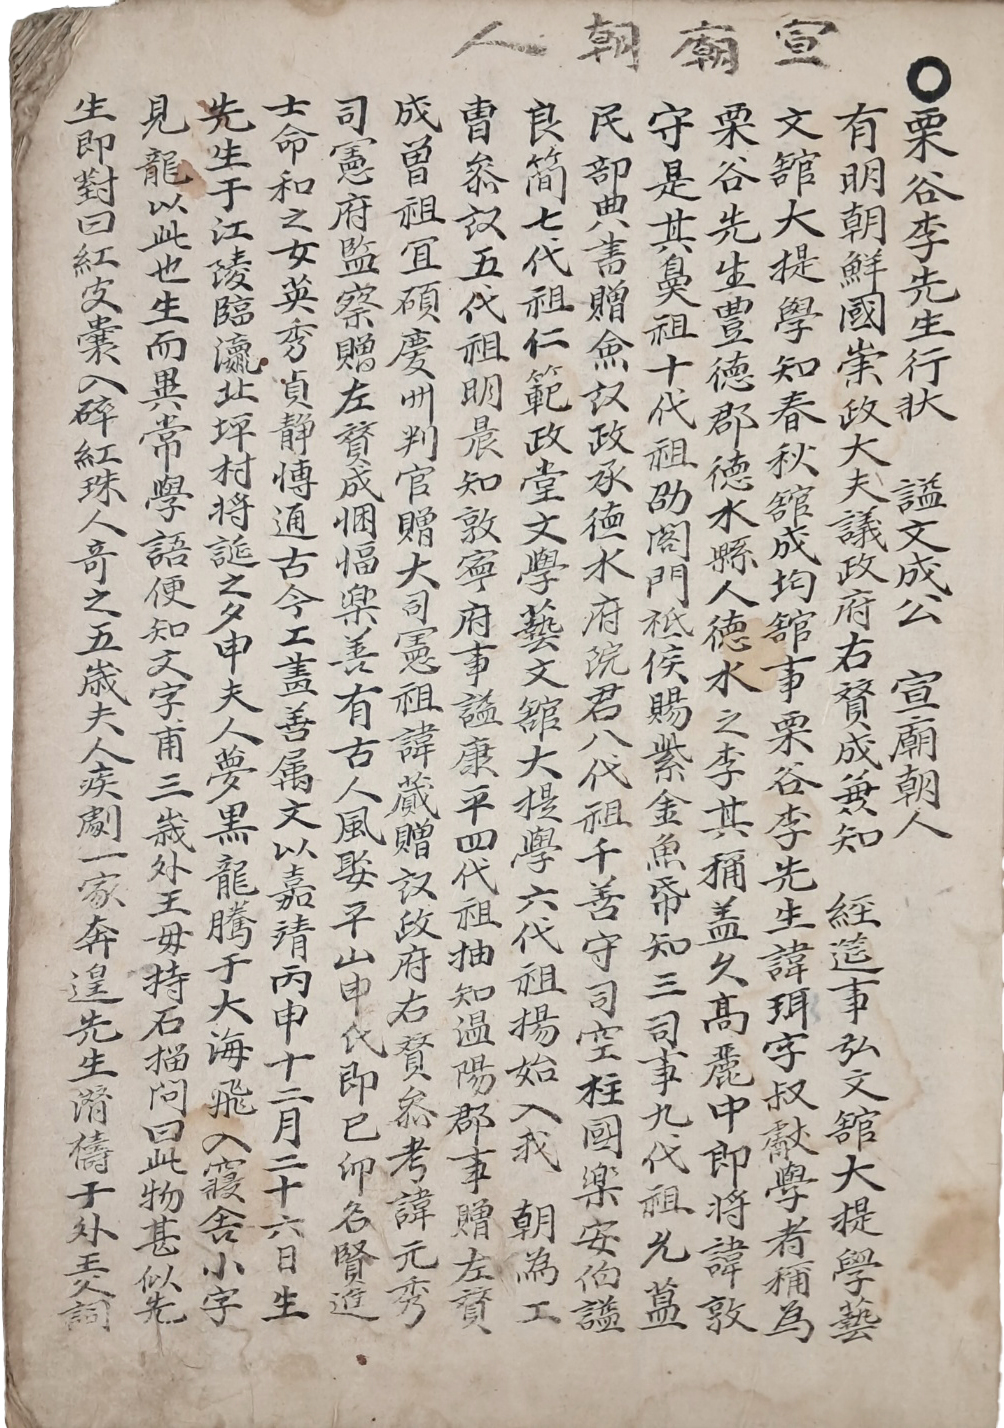 宣廟朝人
○栗谷李先生行狀 諡文成公 宣廟朝人
有明朝鮮國崇政大夫議政府右贊成兼知 經筵事弘文舘大提學藝
文舘大提學知春秋舘成均舘事栗谷李先生諱珥字叔獻學者稱為
栗谷先生豊德郡德水縣人德水之李其稱盖久高麗中郎將諱敦
守是其鼻祖十代祖劭閤門祗侯賜紫金魚帒知三司事九代祖允蒀
民部典書贈僉議政丞德水府院君八代祖千善守司空柱國樂安伯諡
良簡七代祖仁範政堂文學藝文舘大提學六代祖揚始入我 朝為工
曺叅議五代祖明晨知敦寧府事諡康平四代祖抽知温陽郡事贈左贊
成曾祖宜碩慶州判官贈大司憲祖諱蕆贈議政府右贊叅考諱元秀
司憲府監察贈左贊成悃愊樂善有古人風娶平山申氏即己卯名賢進
士命和之女英秀貞静愽通古今工畫善属文以嘉靖丙申十二月二十六日生
先生于江陵臨瀛北坪村将誕之夕申夫人夢黒龍騰于大海飛入寢舍小字
見龍以此也生而異常學語便知文字甫三歲外王母持石榴问曰此物甚似先
生即對曰紅皮囊入碎紅珠人奇之五歲夫人疾劇一家奔遑先生濳禱于外王父詞